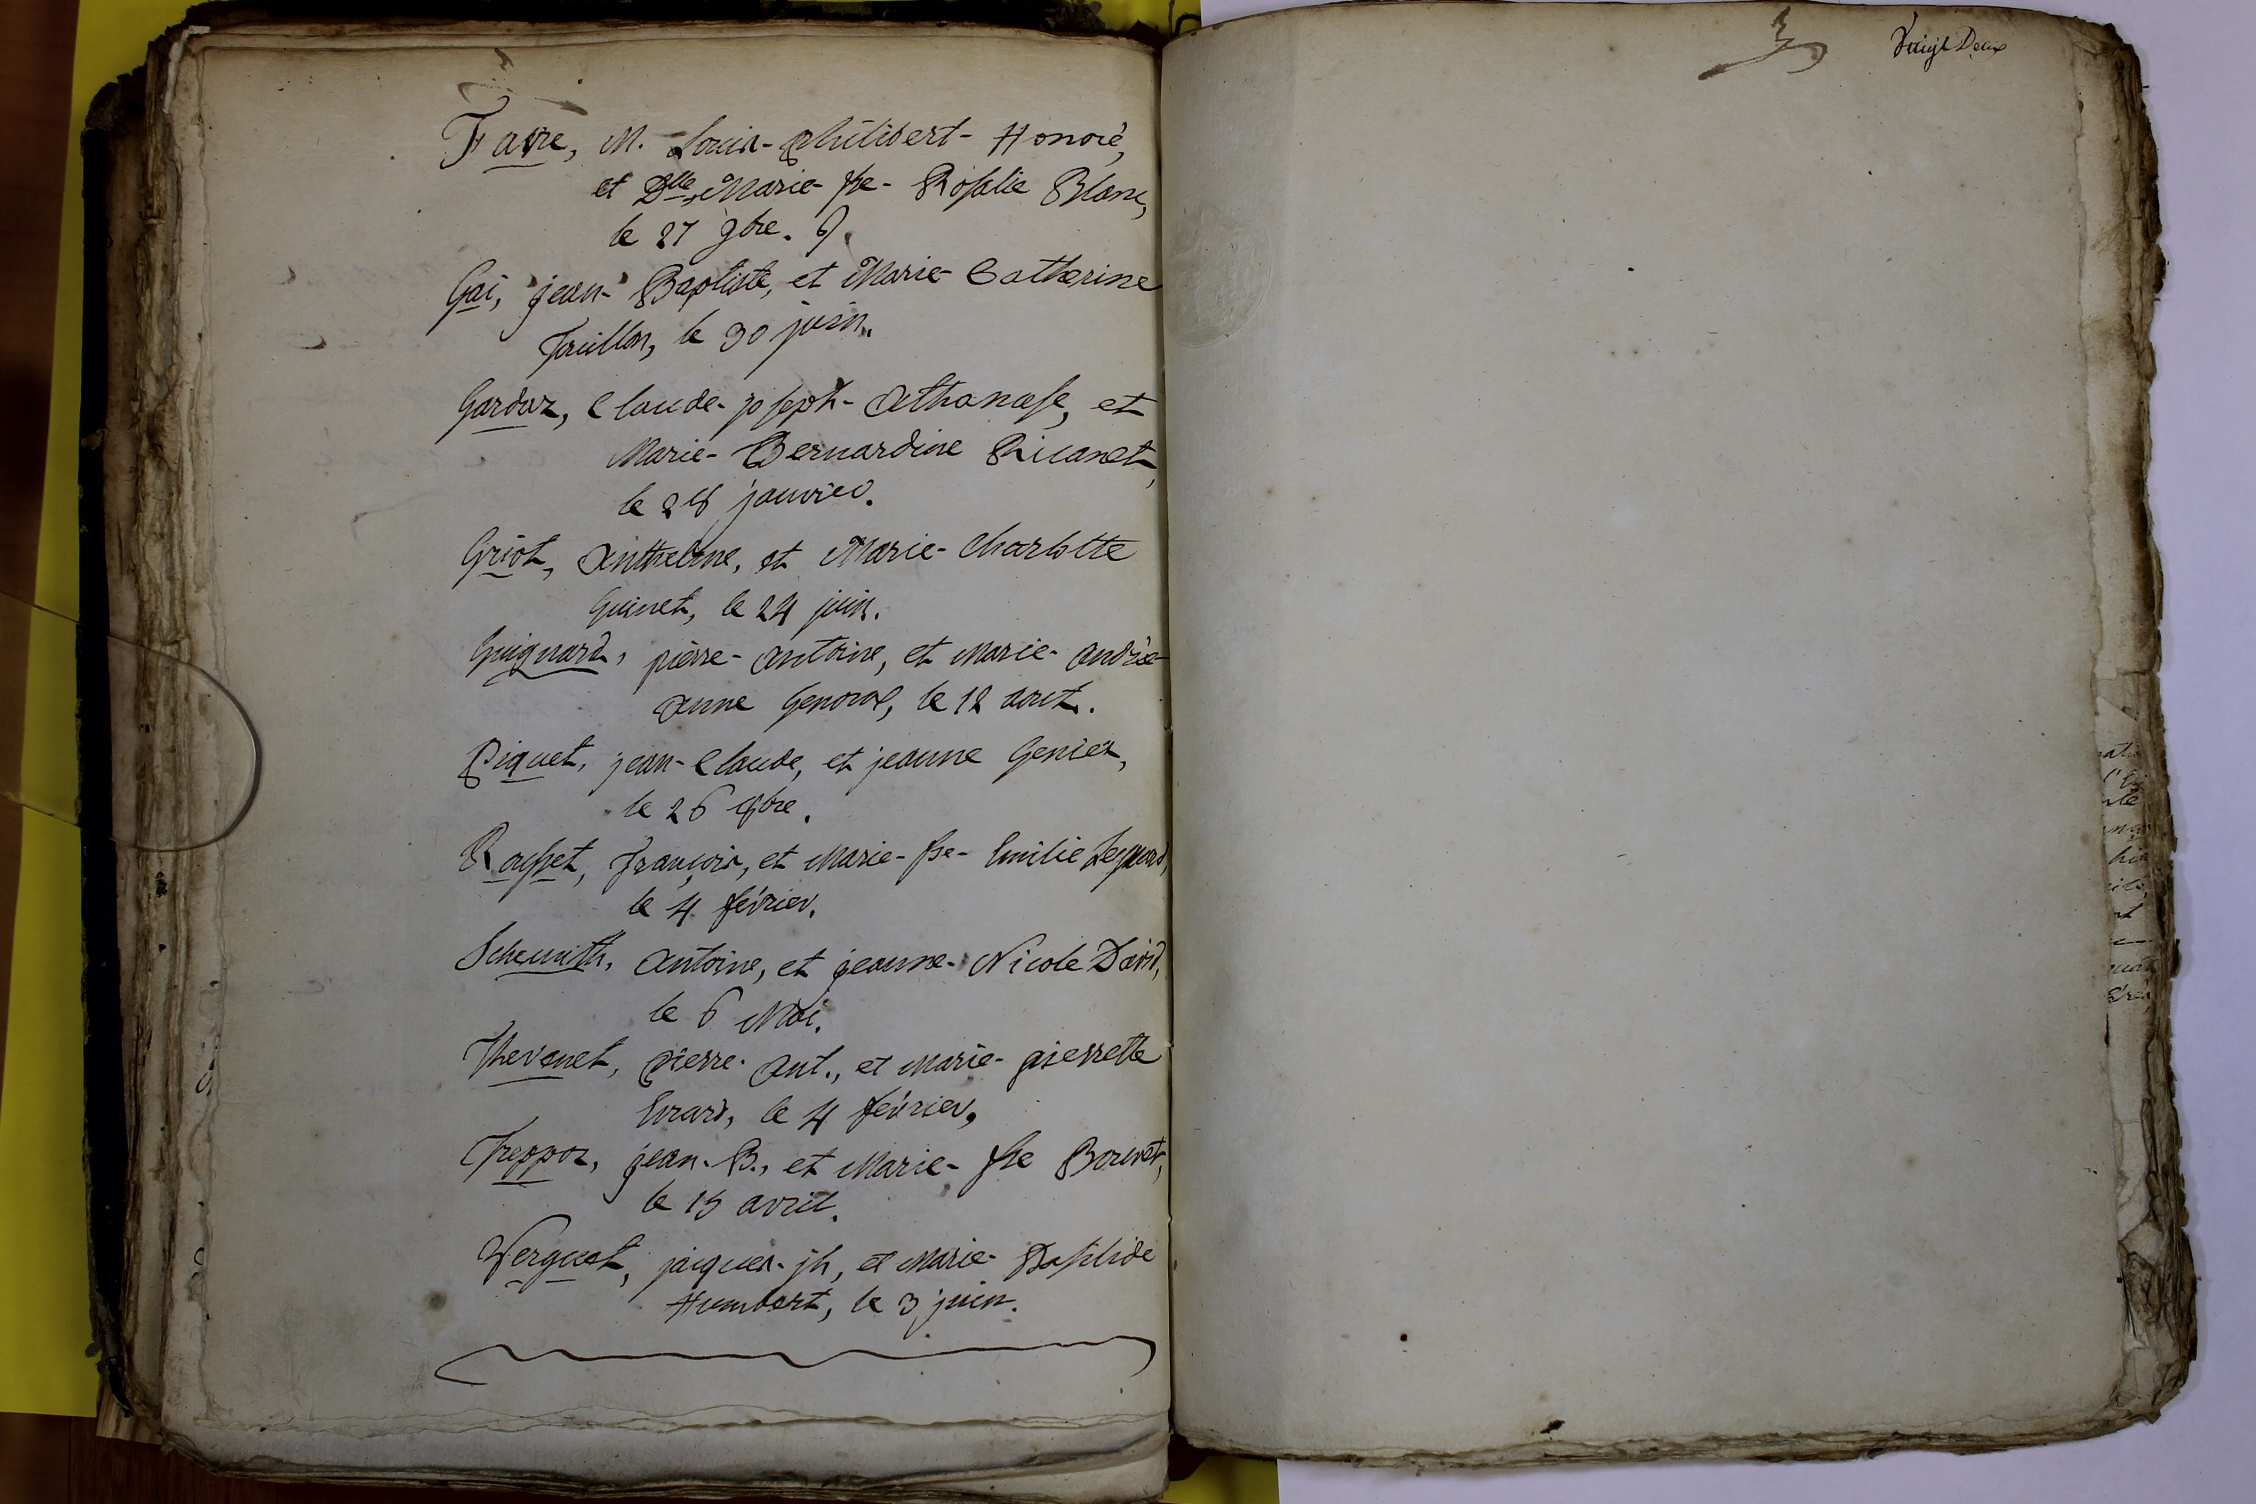 Favre, M. Louis-Philibert-Honoré,
et Dlle Marie-Jhe-Rosalie Blanc,
le 27 9bre.
Gai, jean-Baptiste, et Marie-Catherine
Truillon, le 30 juin.
Gardaz, Claude-joseph-Athanase, et
Marie-Bernardine Ricanet,
le 28 janvier.
Griot, Anthelme, et Marie-Charlotte
Guinet, le 24 juin.
Guignard, pierre-antoine, et Marie-Andrée-
Anne Genoux, le 12 aout.
Piquet, jean-Claude, et jeanne Genier,
le 26
Rousset, françois, et Marie-Jhe-Emilie
le 4 février.
Schemith, Antoine, et jeanne-Nicole David,
le 6 Mai.
Thevenet, Pierre-Ant., et Marie-pierrette
Girard, le 4 février,
Treppoz, jean-B., et Marie-Jhe Bouvet,
le 15 avril.
Verguet, jaques-jh, et Marie-Basilide
Humbert, le 3 juin.
Vingt Deux